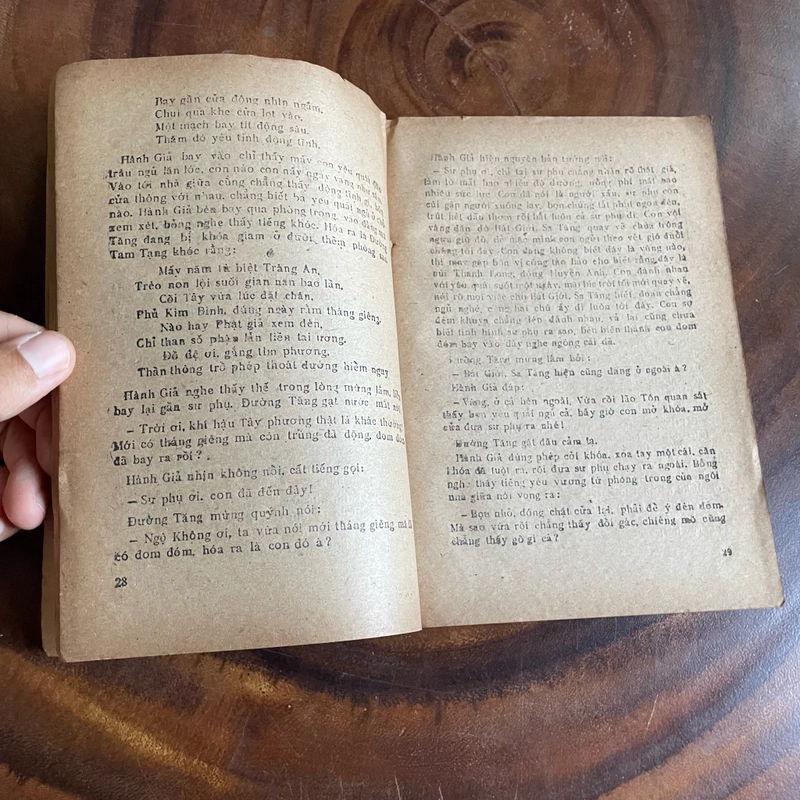 Bay gần cửa động nhìn ngắm.
Chui qua khe cửa lọt vào.
Một mạch bay tít động sâu.
Thăm dò yêu tinh động tĩnh.
Hành Giả bay vào chỉ thấy mấy con yêu quái
trâu ngủ lăn lóc, con nào con nấy ngáy vang như
Vào tới nhà giữa cũng chẳng thấy động tĩnh gì,
cửa thông với nhau, chẳng biết ba yêu quái ngủ ở
nào. Hành Giả bèn bay qua phòng trong, vào đằng
xem xét, bỗng nghe thấy tiếng khóc. Hóa ra là Đường
Tăng đang bị khóa giam ở dưới thềm phòng
Tam Tạng khóc rằng:
Mấy năm từ biệt Tràng An,
Trèo non lội suối gian nan bao lần,
Cõi Tây vừa lúc đặt chân,
Phủ Kim Bình, đúng ngày rằm tháng giêng,
Nào hay Phật giả xem đèn,
Chỉ than số phận lắm liền tai ương.
Đồ đệ ơi, gắng tìm phương,
Thần thông trổ phép thoát đường hiểm nguy
Hành Giả nghe thấy thế trong lòng mừng lắm,
bay lại gần sư phụ. Đường Tăng gạt nước mắt
— Trời ơi, khí hậu Tây phương thật là khác thường
Mới có tháng giêng mà côn trùng đã động, đom đóm
đã bay ra rồi ?
Hành Giả nhịn không nổi, cất tiếng gọi:
— Sư phụ ơi, con đã đến đây!
Đường Tăng mừng quýnh nói:
— Ngộ Không ơi, ta vừa nói mới tháng giêng mà đã
có đom đóm, hóa ra là con đó à?
28
Hành Giả hiện nguyên bản tướng nói:
— Sư phụ ơi, chỉ tại sư phụ chẳng nhìn rõ thật, giả,
làm lỡ mất bao nhiêu độ đường, uổng phí mất bao
nhiêu sức lực. Con đã nói là người xấu, sư phụ còn
cúi gập người xuống lạy, bọn chúng tắt phụt ngọn đèn,
trút hết dầu thơm rồi bắt luôn cả sư phụ đi. Con vội
vàng dặn dò Bát Giới, Sa Tăng quay về chùa trông
ngựa giữ đồ, để mặc mình con ngửi theo vệt gió đuổi
chẳng tới đây. Con đang không biết đây là vùng nào,
thì may gặp bản vị công tào bảo cho biết rằng đây là
núi Thanh Long, động Huyền Anh. Con đánh nhau
với yêu quái suốt một ngày, mãi lúc trời tối mới quay về,
nói rõ mọi việc cho Bát Giới, Sa Tăng biết, đoạn chẳng
ngủ nghê, cùng hai chú ấy đi luôn tới đây. Con sợ
đêm khuya chẳng tiện đánh nhau, vả lại cũng chưa
biết tình hình sư phụ ra sao, liền biến thành con đom
đóm bay vào đây nghe ngóng cái đã.
Đường Tăng mừng lắm hỏi:
— Bát Giới, Sa Tăng hiện cũng đang ở ngoài à?
Hành Giả đáp:
— Vâng, ở cả bên ngoài. Vừa rồi lão Tôn quan sát
thấy bọn yêu quái ngủ cả, bây giờ con mở khóa, mở
cửa đưa sư phụ ra nhé!
Đường Tăng gật đầu cảm tạ.
Hành Giả dùng phép cởi khóa, xoa tay một cái, căn
khóa đã tuột ra, rồi đưa sư phụ chạy ra ngoài. Bỗng
nghe thấy tiếng yêu vương từ phòng trong của ngôi
nhà giữa nói vọng ra:
— Bọn nhỏ, đóng chặt cửa lại, phải để ý đèn đóm.
Mà sao vừa rồi chẳng thấy đổi gác, chiêng mõ cũng
chẳng thấy gõ gì cả?
29